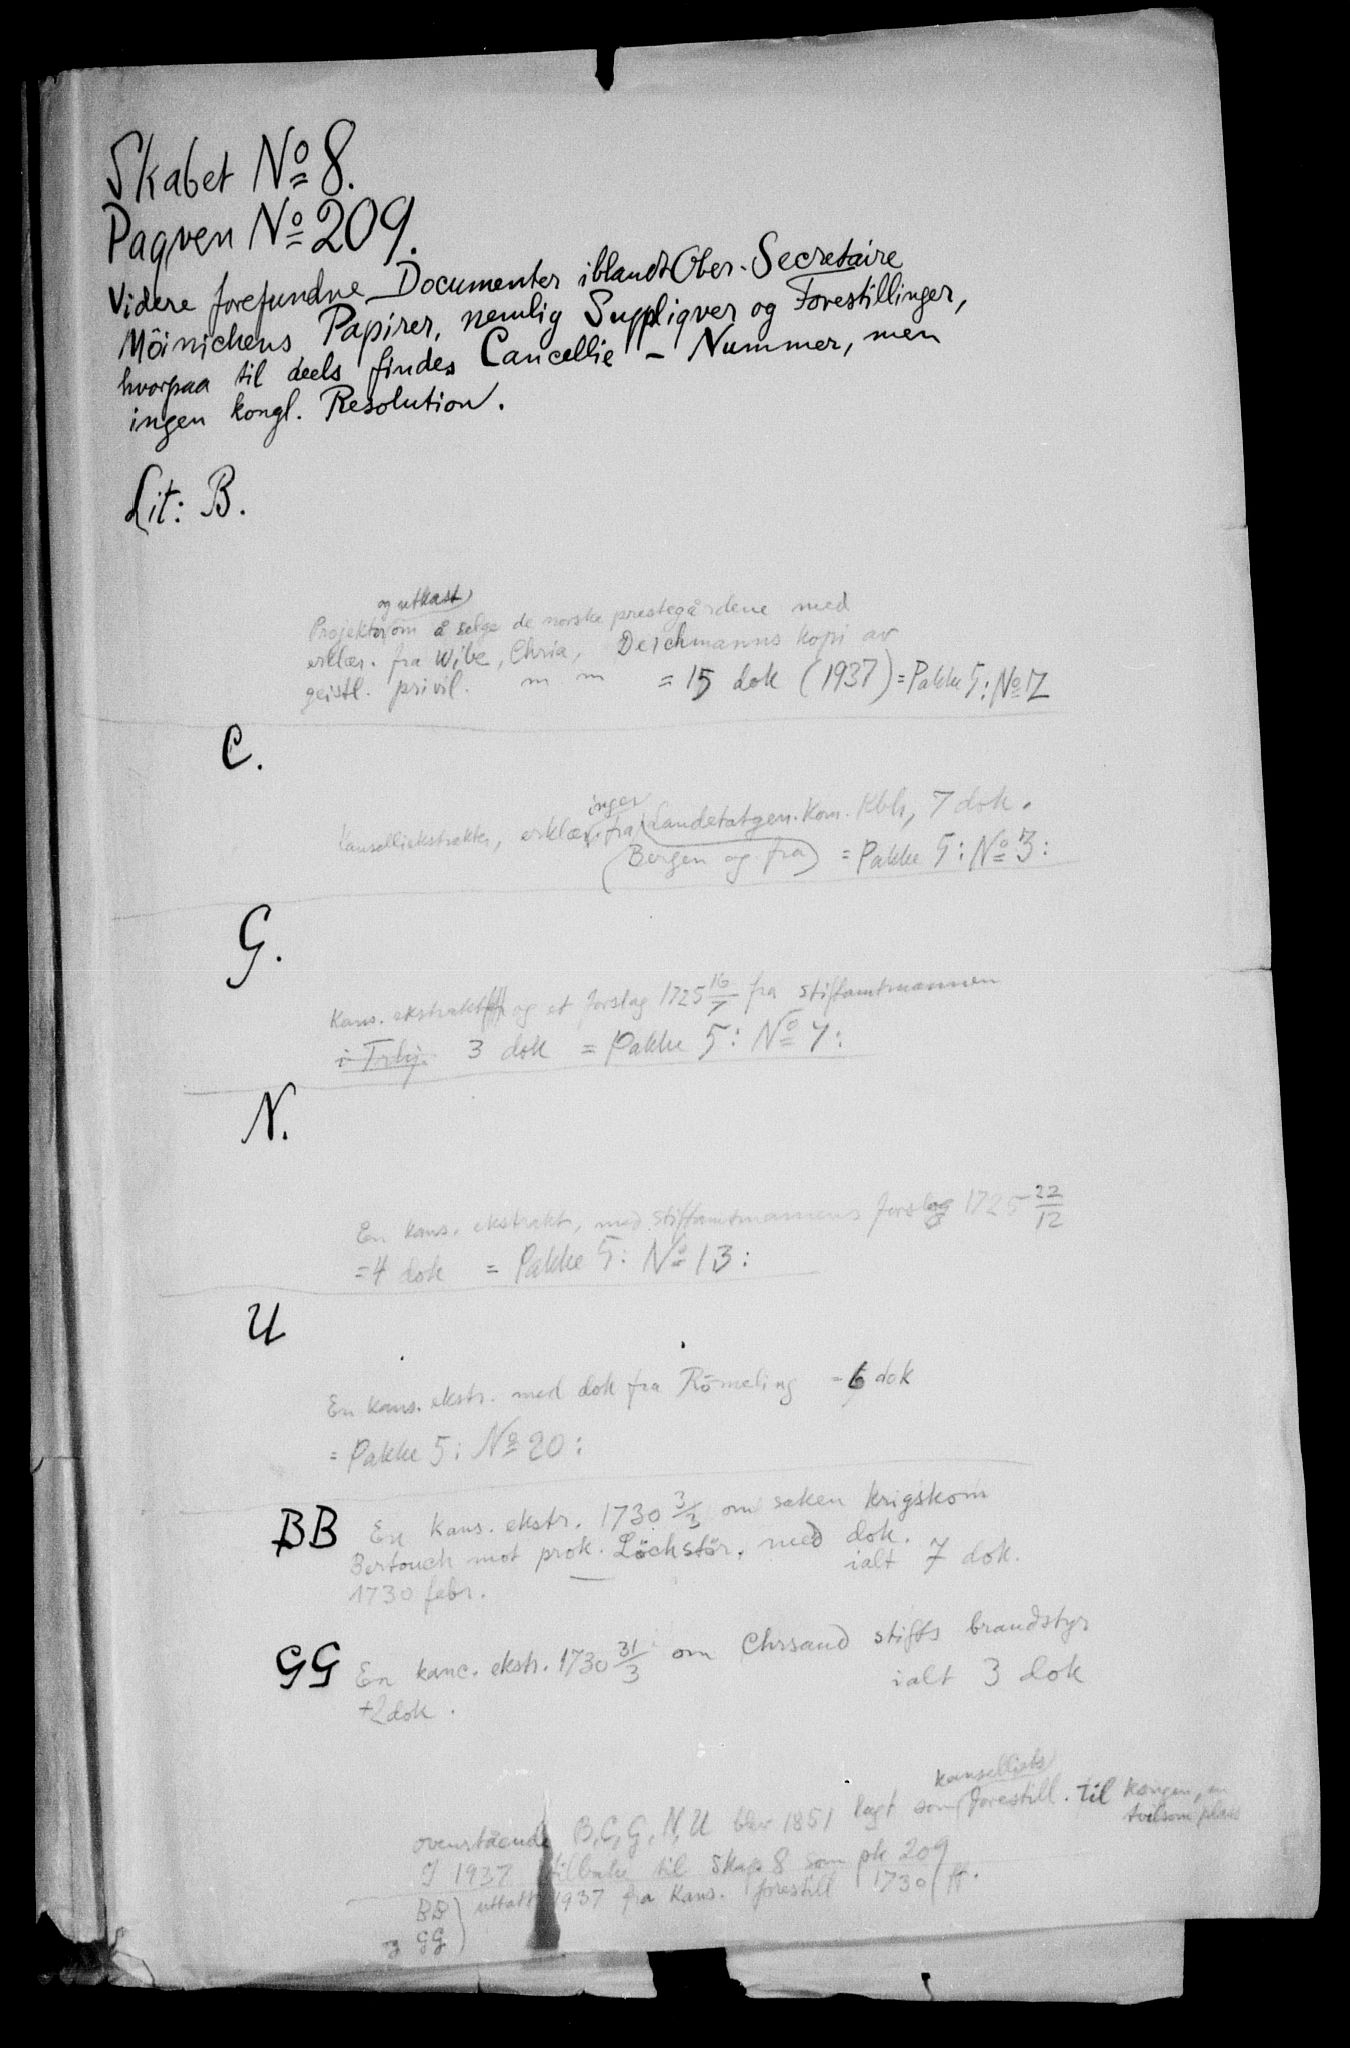 Skabet No 8.
Paqven No 209.
Videre forefundne Documenter iblandt Ober-Secretaire
Möinichens Papirer, nemlig Suppliqver og Forestillinger,
hvorpaa til deels findes Cancellie - Nummer, men
ingen kongl. Resolution.
Lit: B.
og utkast
Projekter om å selge de norske prestegårdene med
erklær. fra Wibe, Chria, Deichmanns kopi av
geistl. privil. m m = 15 dok (1937) = Pakke 5: No
C.
inger
Kanselliekstrakter, erklær. fra Landetatgen. Kom. Kbh, 7 dok.
(Bergen og fra) = Pakke 5: No 3:
G.
Kans. ekstrakt og et forslag 1725 16/7 fra stiftamtmannen
i Trhj. 3 dok = Pakke 5: No 7:
N.
En kans. ekstrakt, med stiftamtmannens forslag 1725 22/12
= 4 dok = Pakke 5: No 13:
U
En kans. ekstr. med dok fra Römeling = 6 dok
= Pakke 5: No 20:
BB En kans. ekstr. 1730 3/3 om saken krigskom
Bertouch mot prok. Löchstör. med dok.
1730 febr. ialt 7 dok.
GG En kanc. ekstr. 1730 31/3 om Chrsand stifts brandstyr
+2 dok. ialt 3 dok
ovenstående B, C, G, N, U blev 1851 lagt som forestill. til kongen, en
tvilsom plass
I 1937 tilbake til Skap 8 som pk 209
BB
GG) uttatt 1937 fra Kans. forestill 1730